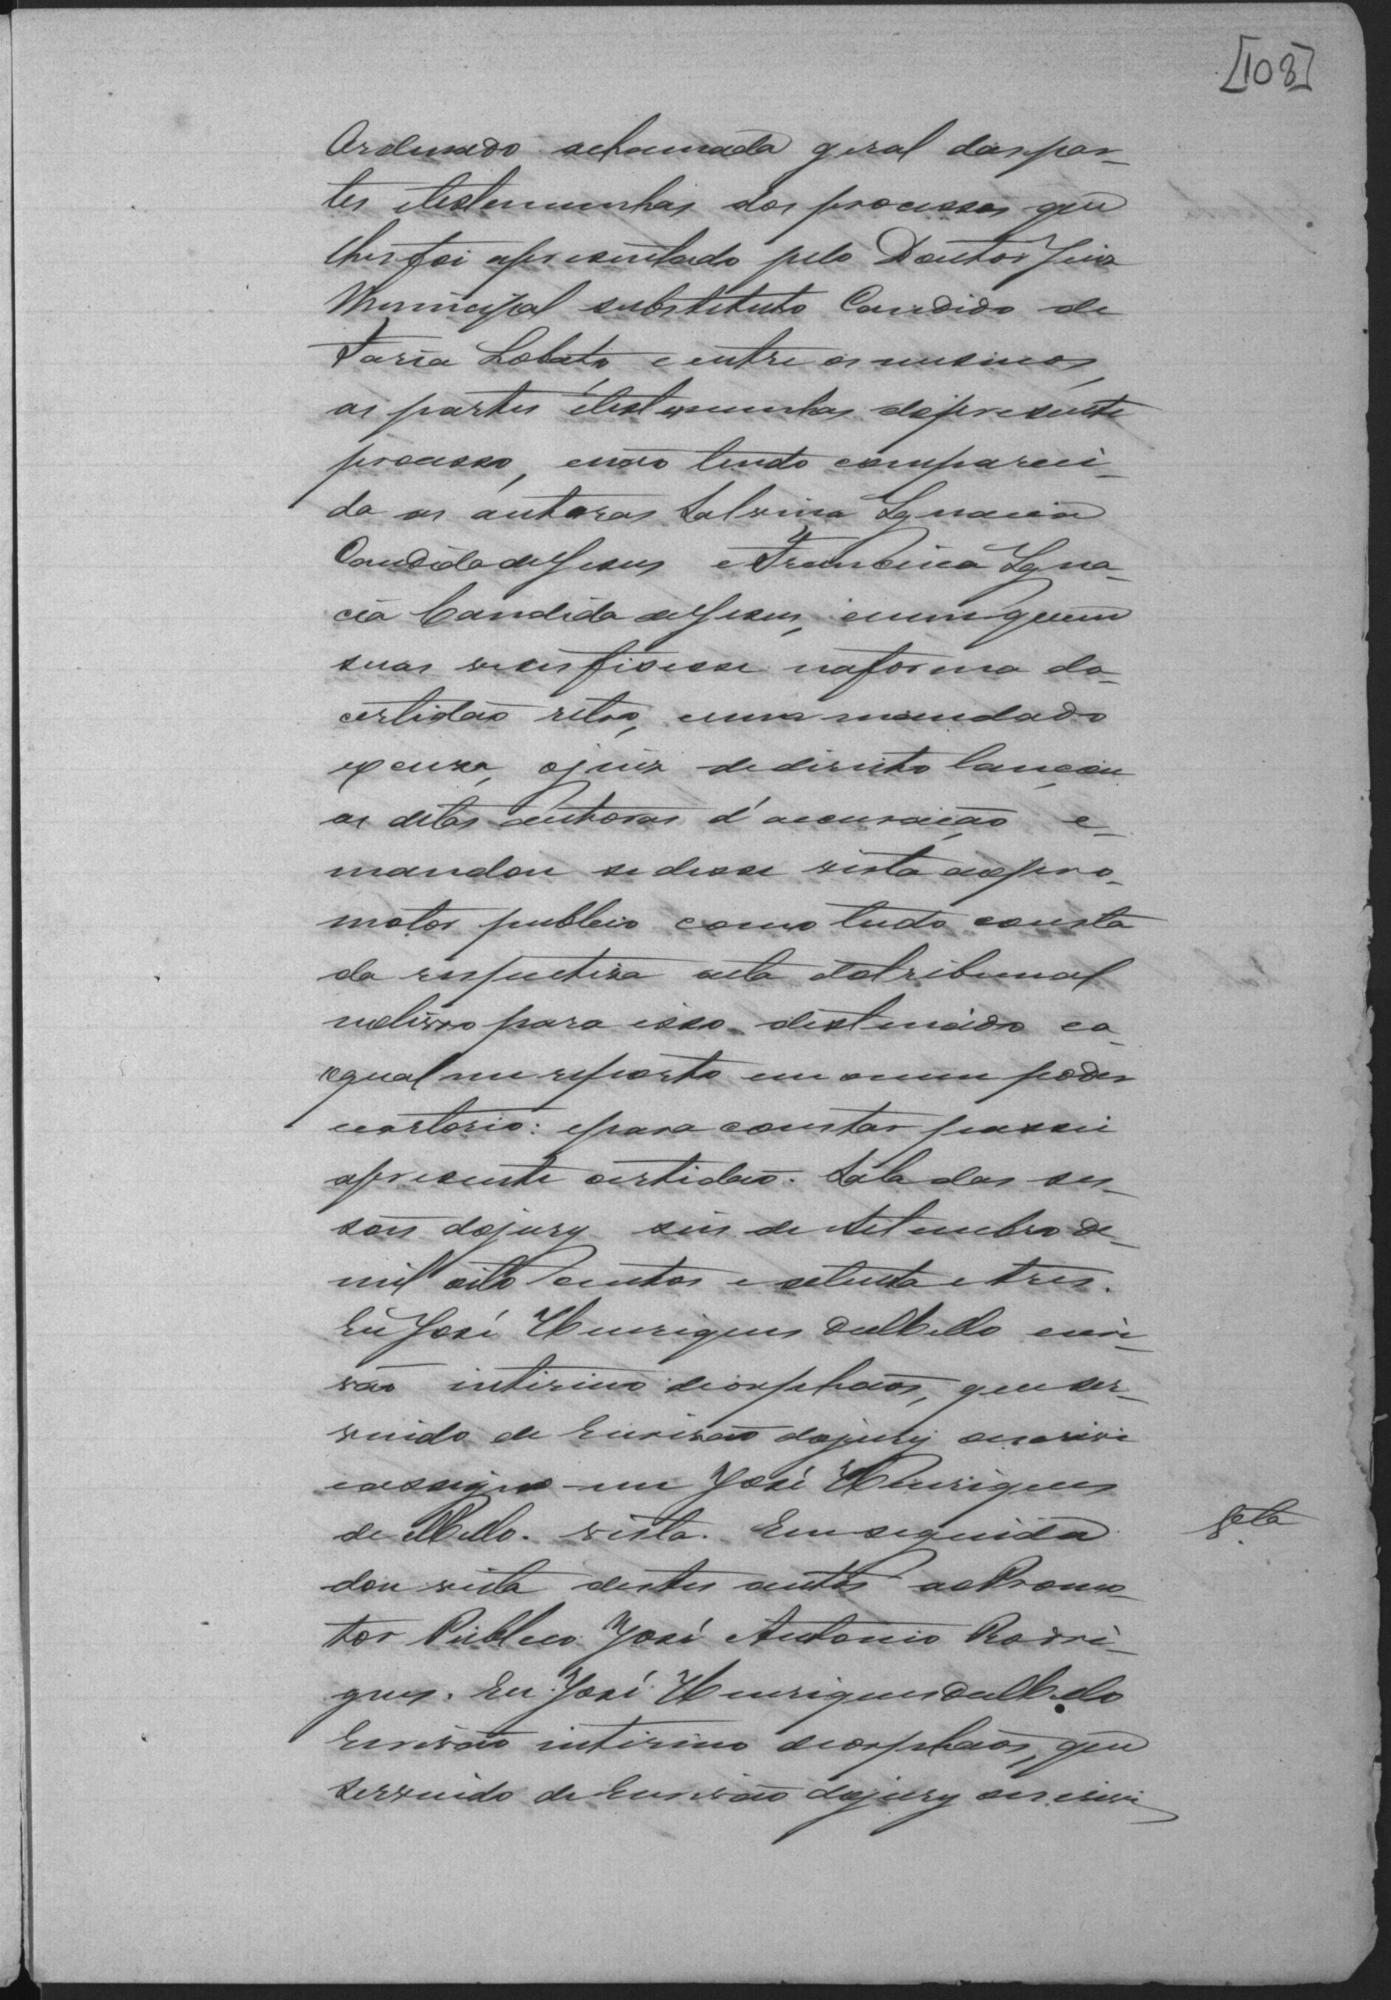 [108]
Ordenado achamada geral daspar-
tes etestemunhas dos processos que
lhes foi apresentado pelo Doutor Juiz
Municipal substituto Candido de
Faria Lobato, e entre os mesmos,
as partes etestemunhas dopresente
processo, enão tendo compareci-
do as autoras Salvina Ignacia
Candida de Jesus e Francisca Igna-
cia Candida de Jesus, enem quem
suas vezes fisesse naforma da
certidão retro, enem mandado
excusa, ojuiz dedireito lançou
as ditas autoras d'accusação, e
mandou se desse vista aopro-
motor publico como tudo consta
da respectiva acta dotribunal
nolivro para isso destinado ea
qual me reporto em meu poder
ecartorio: epara constar passei
apresente certidão. Sala das ses-
sões dojury seis de Setembro de
mil oito centos e setenta e tres.
Eu José Henriques de Mello escri-
vão interino deorphãos, que ser-
vindo de Escrivão dojury oescrevi
eassigno-me José Henriques
de Mello. vista. Em seguida
dou vista destes autos ao Promo
tor Publico José Antonio Rodri-
gues. Eu José Henriques de Mello
Escrivão interino deorphãos, que
servindo de Escrivão dojury oescrevi